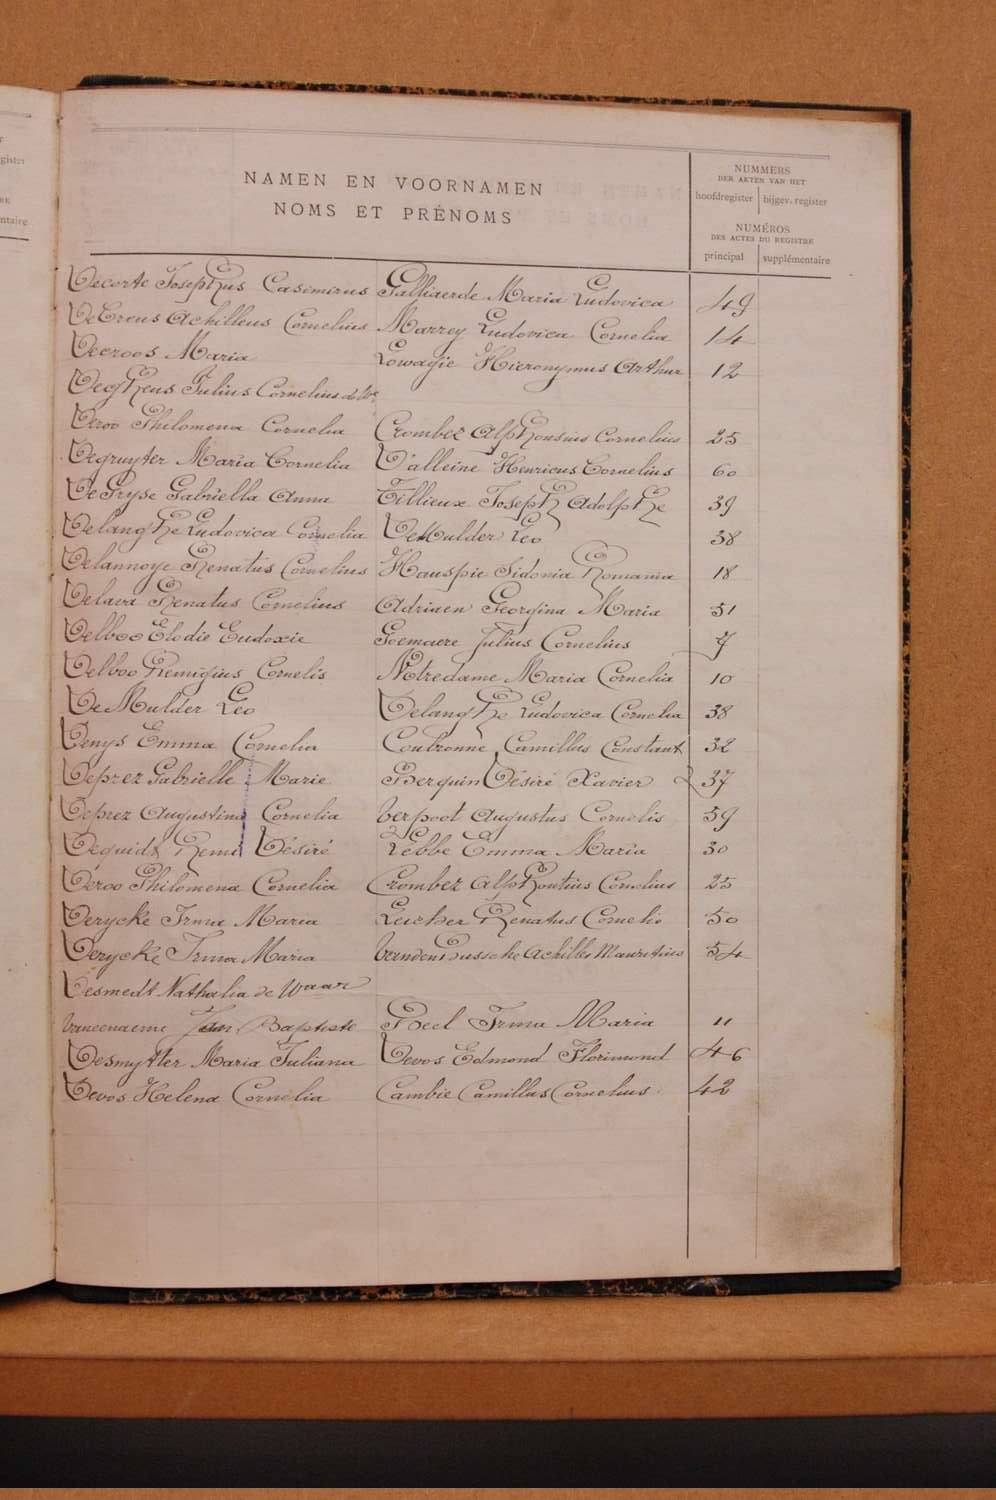 NAMEN EN VOORNAMEN
NOMS ET PRÉNOMS
NUMMERS
DER AKTEN VAN HET
hoofdregister bijgev. register
NUMÉROS
DES ACTES DU REGISTRE
principal supplémentaire
Decorte Josephus Casimirus Galliaerde Maria Ludovica 49
DeCreus Achilleus Cornelius Marrey Ludovica Cornelia 14
Decroos Maria Lowagie Hieronymus Arthur 12
Julius Cornelius de We
Deroo Philomena Cornelia Crombez Alphonsius Cornelius 25
Degruyter Maria Cornelia D'alleine Henricus Cornelius 60
DePryse Gabriella Anna Tillieux Joseph Adolphe 39
Delanghe Ludovica Cornelia DeMulder Leo 38
Delannoye Renatus Cornelius Hauspie Sidonia Romania 18
Delava Renatus Cornelius Adriaen Georgina Maria 51
Delboo Elodie Eudoxie Goemaere Julius Cornelius 7
Delboo Remigius Cornelis Notredame Maria Cornelia 10
De Mulder Leo Delanghe Ludovica Cornelia 38
Denys Emma Cornelia Coubronne Camillus Constant 32
Deprez Gabrielle Marie Berquin Désiré Xavier 37
Deprez Augustina Cornelia Verpoot Augustus Cornelis 59
Dequidt Remi Désiré Lebbe Emma Maria 30
Deroo Philomena Cornelia Crombez Alphontius Cornelius 25
Derycke Irma Maria Renatus Cornelis 50
Derycke Irma Maria VandenBussche Achilles Mauritius 54
Desmedt Nathalia de Waar
Vaneenaeme Jan Baptiste Poel Irma Maria 11
Desmytter Maria Juliana Devos Edmond Florimond 46
Devos Helena Cornelia Cambie Camillus Cornelius 42